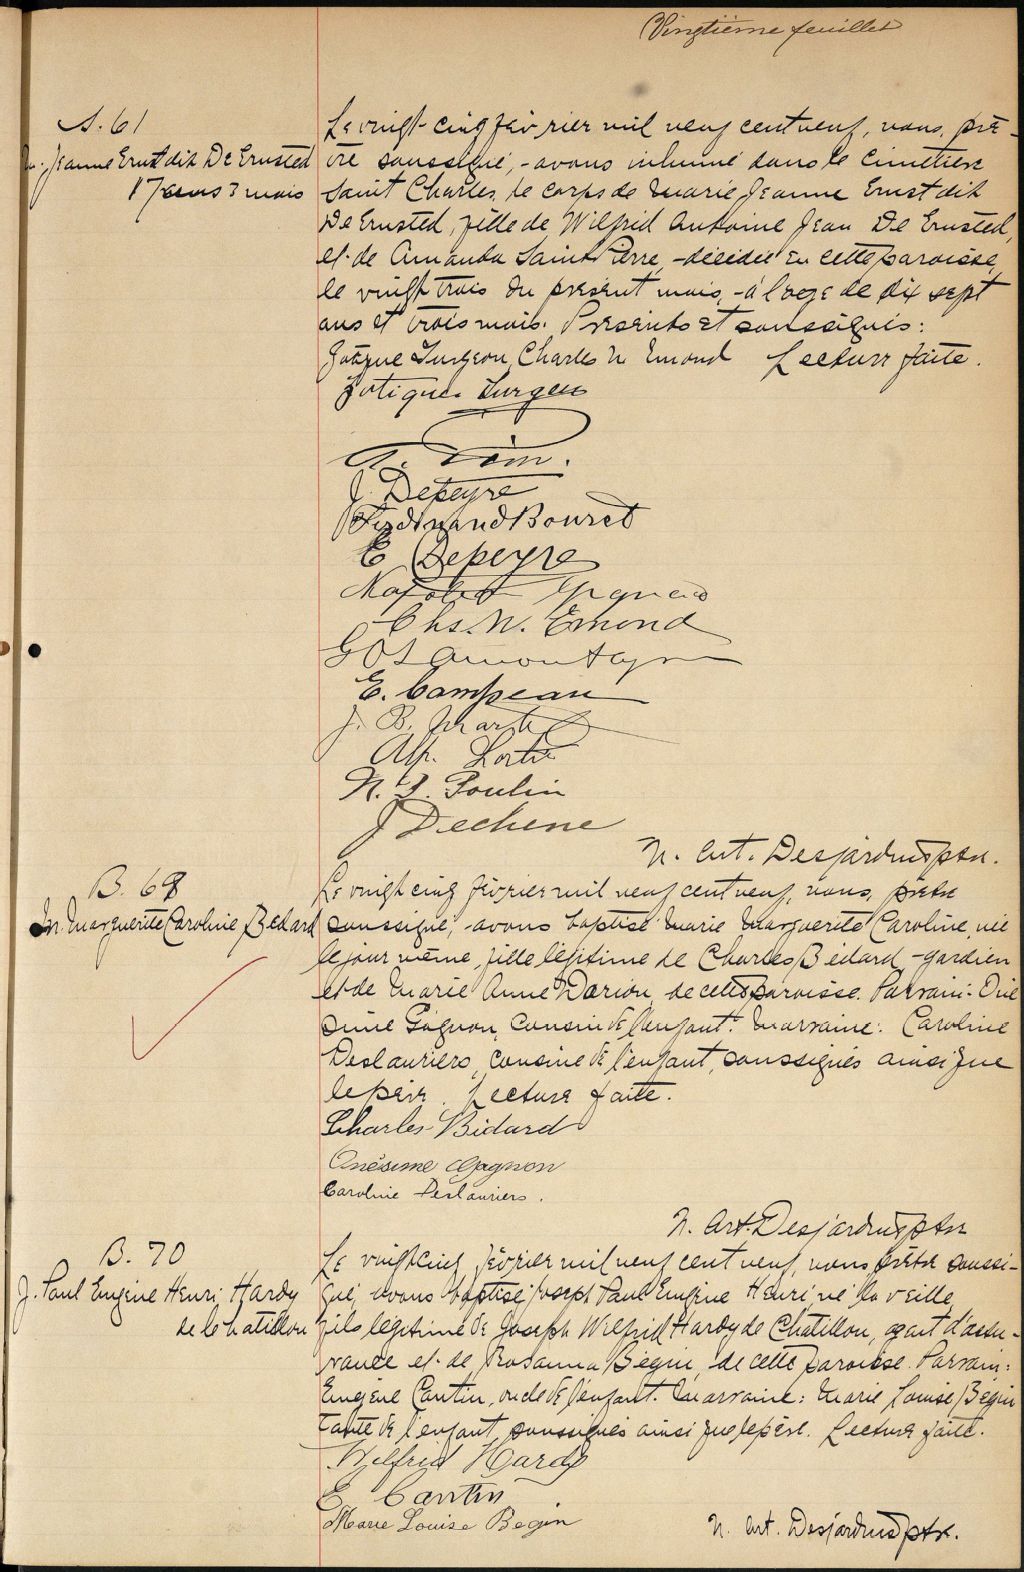 Vingtième feuillet
S. 61
M. Jeanne Ernst dit De Ernsted
17 ans 3 mois
Le vingt-cinq février mil neuf cent neuf, nous, prê-
tre soussigné, avons inhumé dans le cimetière
Saint Charles, le corps de Marie Jeanne Ernst dit
De Ernsted, fille de Wilfrid Antoine Jean De Ernsted,
et de Amanda Saint Pierre, décédée en cette paroisse,
le vingt trois du présent mois, à l'age de dix sept
ans et trois mois. Présents et soussignés:
Zotique Turgeon, Charles N Emond Lecture faite.
Zotique Turgeon
J. Depeyre
Ferdinand Bouret
E Depeyre
Chs. N. Emond
G O Lamontagne
E. Campeau
J. B.
Alp. Lortie
N. J. Poulin
J Dechene
N. Art. Desjardins ptr.
B. 69
M. Marguerite Caroline Bédard
Le vingt cinq février mil neuf cent neuf, nous, prêtre
soussigné, avons baptisé Marie Marguerite Caroline, née
le jour même, fille légitime de Charles Bédard gardien
et de Marie Anne Darion, de cette paroisse. Parrain: Oné-
sime Gagnon, cousin de l'enfant. Marraine: Caroline
Deslauriers, cousine de l'enfant, soussignés ainsi que
le père. Lecture faite.
Charles Bédard
Onésime Gagnon
Caroline Deslauriers.
N. Art. Desjardins ptr
B. 70
J. Paul Eugène Henri Hardy
de Chatillon
Le vingt cinq février mil neuf cent neuf, nous prêtre soussi-
gné, avons baptisé Joseph Paul Eugène Henri, né la veille,
fils légitime de Joseph Wilfrid Hardy de Chatillon, agent d'assu-
rance et de Rosanna Bégin, de cette paroisse. Parrain:
Eugène Cantin, oncle de l'enfant. Marraine: Marie Louise Bégin
tante de l'enfant, soussignés ainsi que le père. Lecture faite.
Wilfrid Hardy
E Cantin
Marie Louise Begin
N. Art. Desjardins ptr.